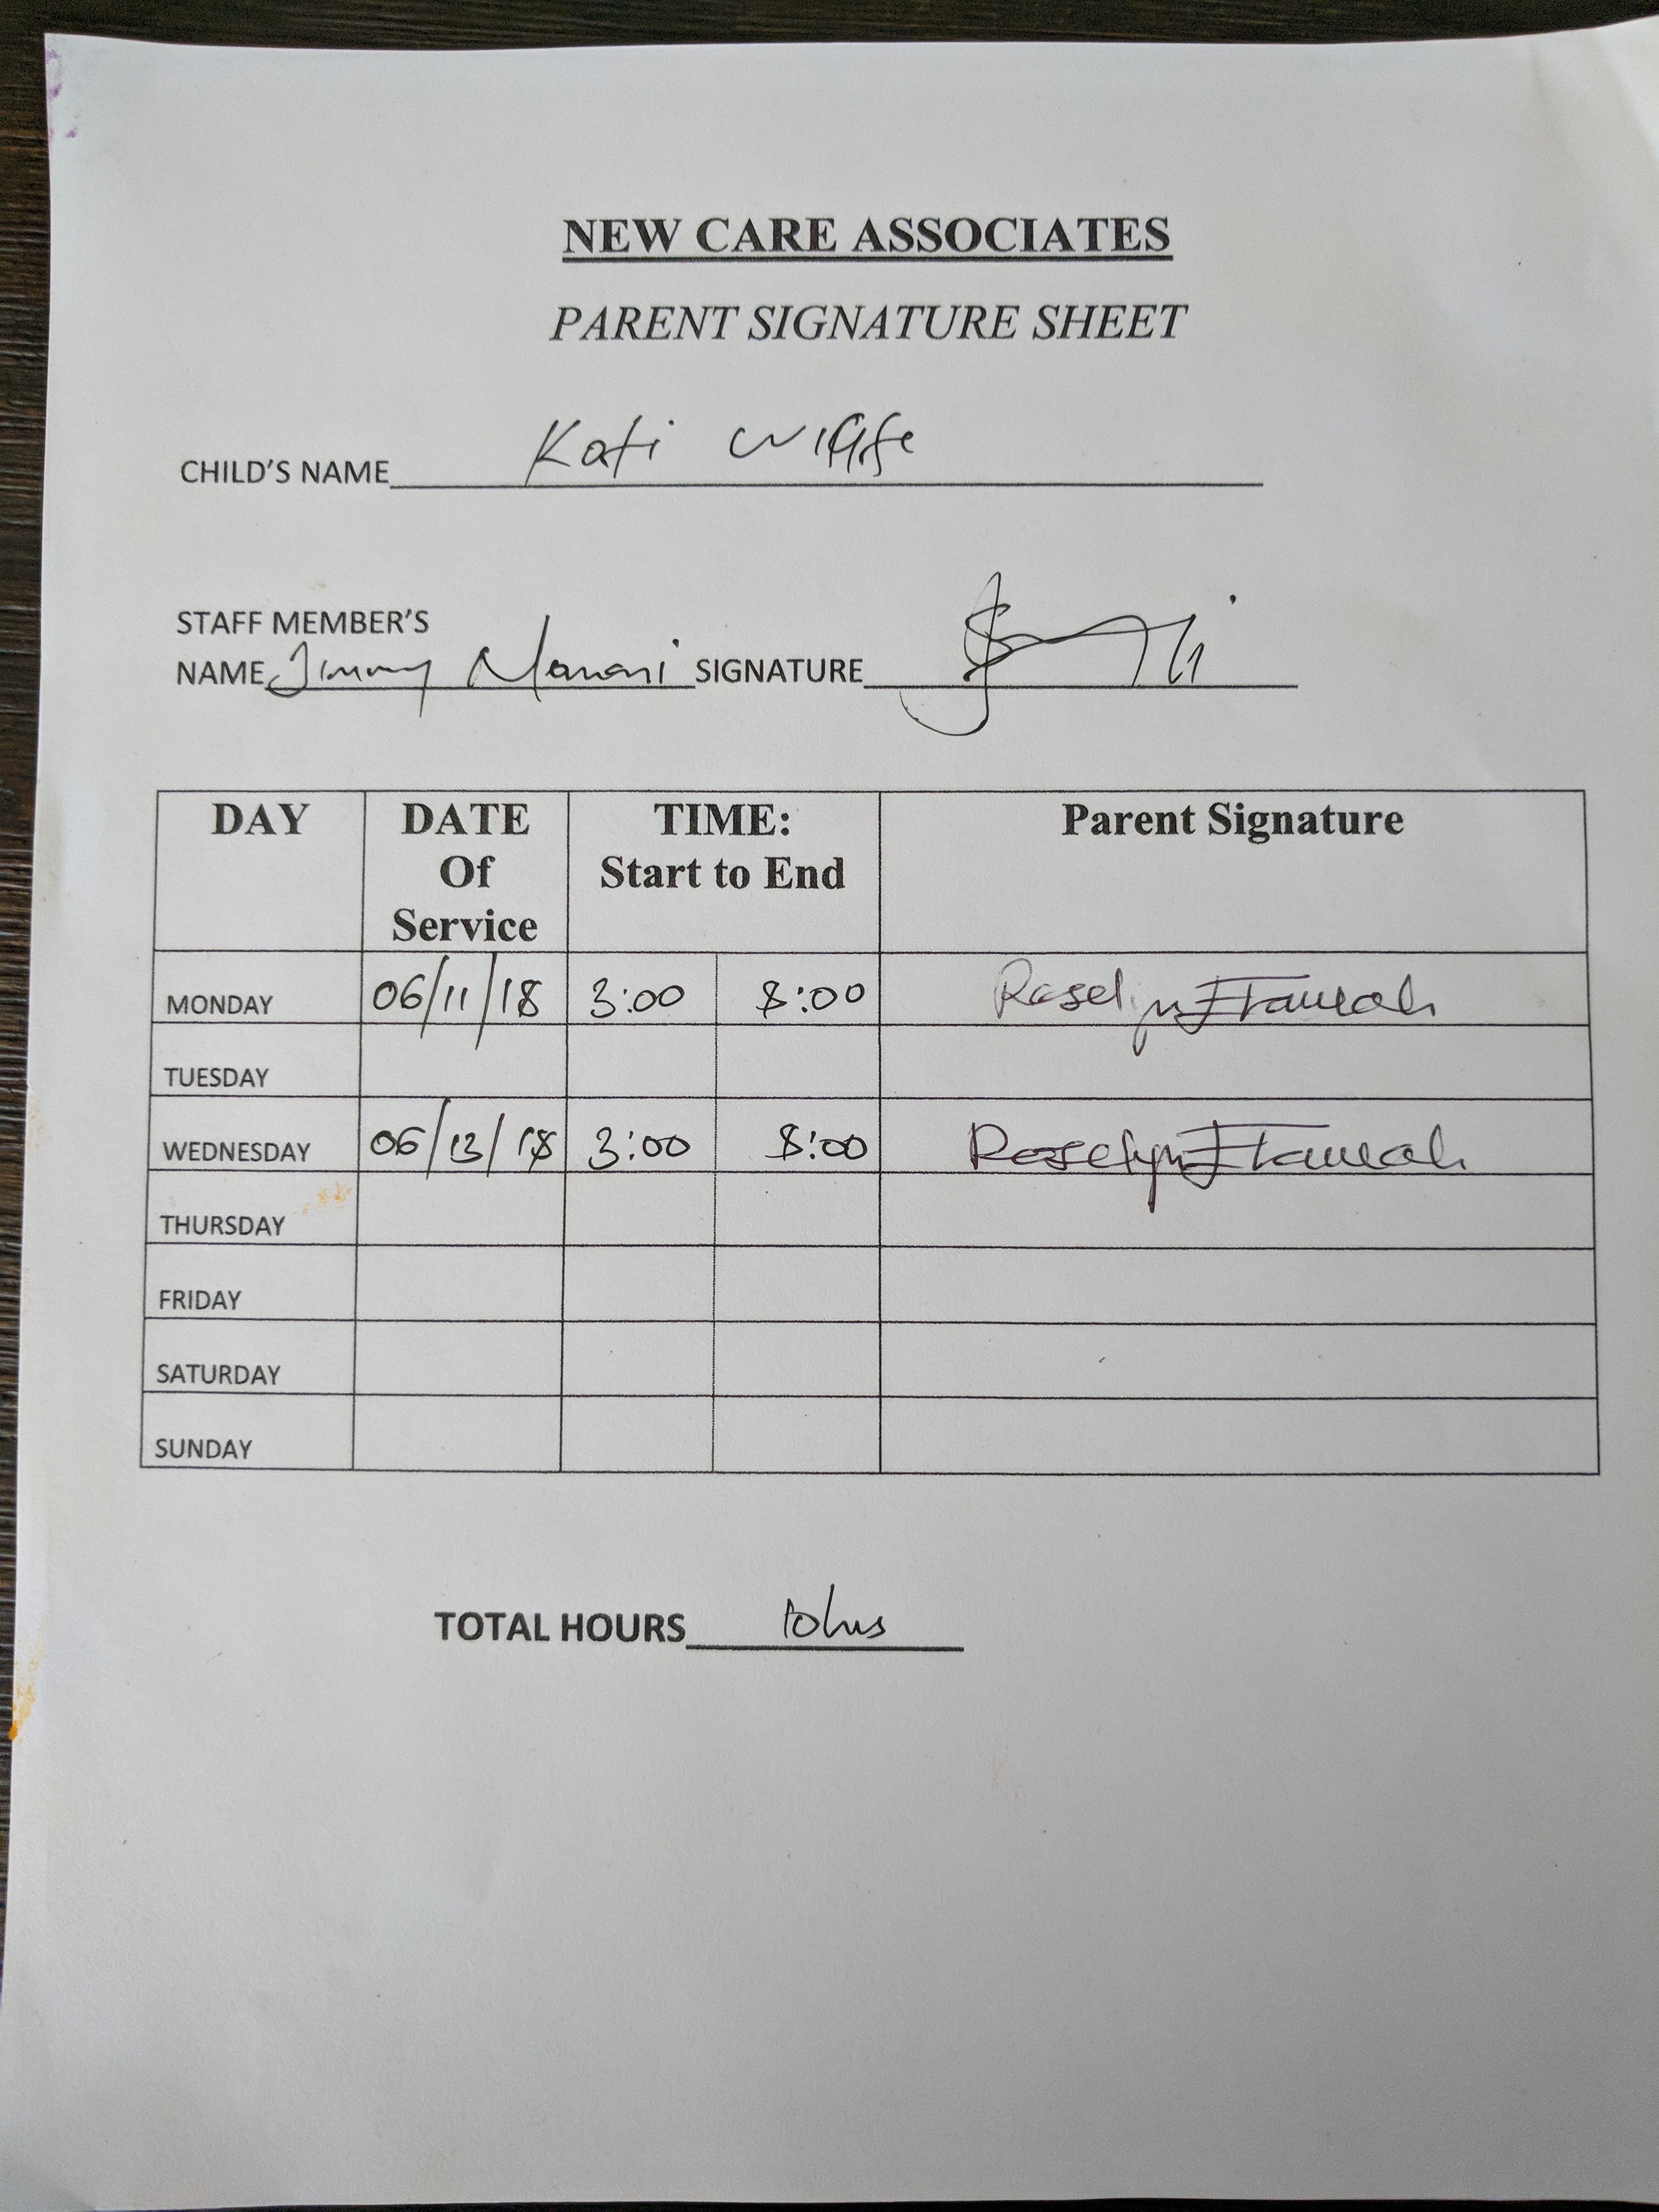 NEW CARE ASSOCIATES
PARENT SIGNATURE SHEET
CHILD'S NAME Kofi
STAFF MEMBER'S
NAME Jimmy SIGNATURE
DAY DATE Of Service TIME: Start to End Parent Signature
MONDAY 06/11/18 3:00 8:00 Roselyn
TUESDAY
WEDNESDAY 06/13/18 3:00 8:00 Roselyn
THURSDAY
FRIDAY
SATURDAY
SUNDAY
TOTAL HOURS 10hrs